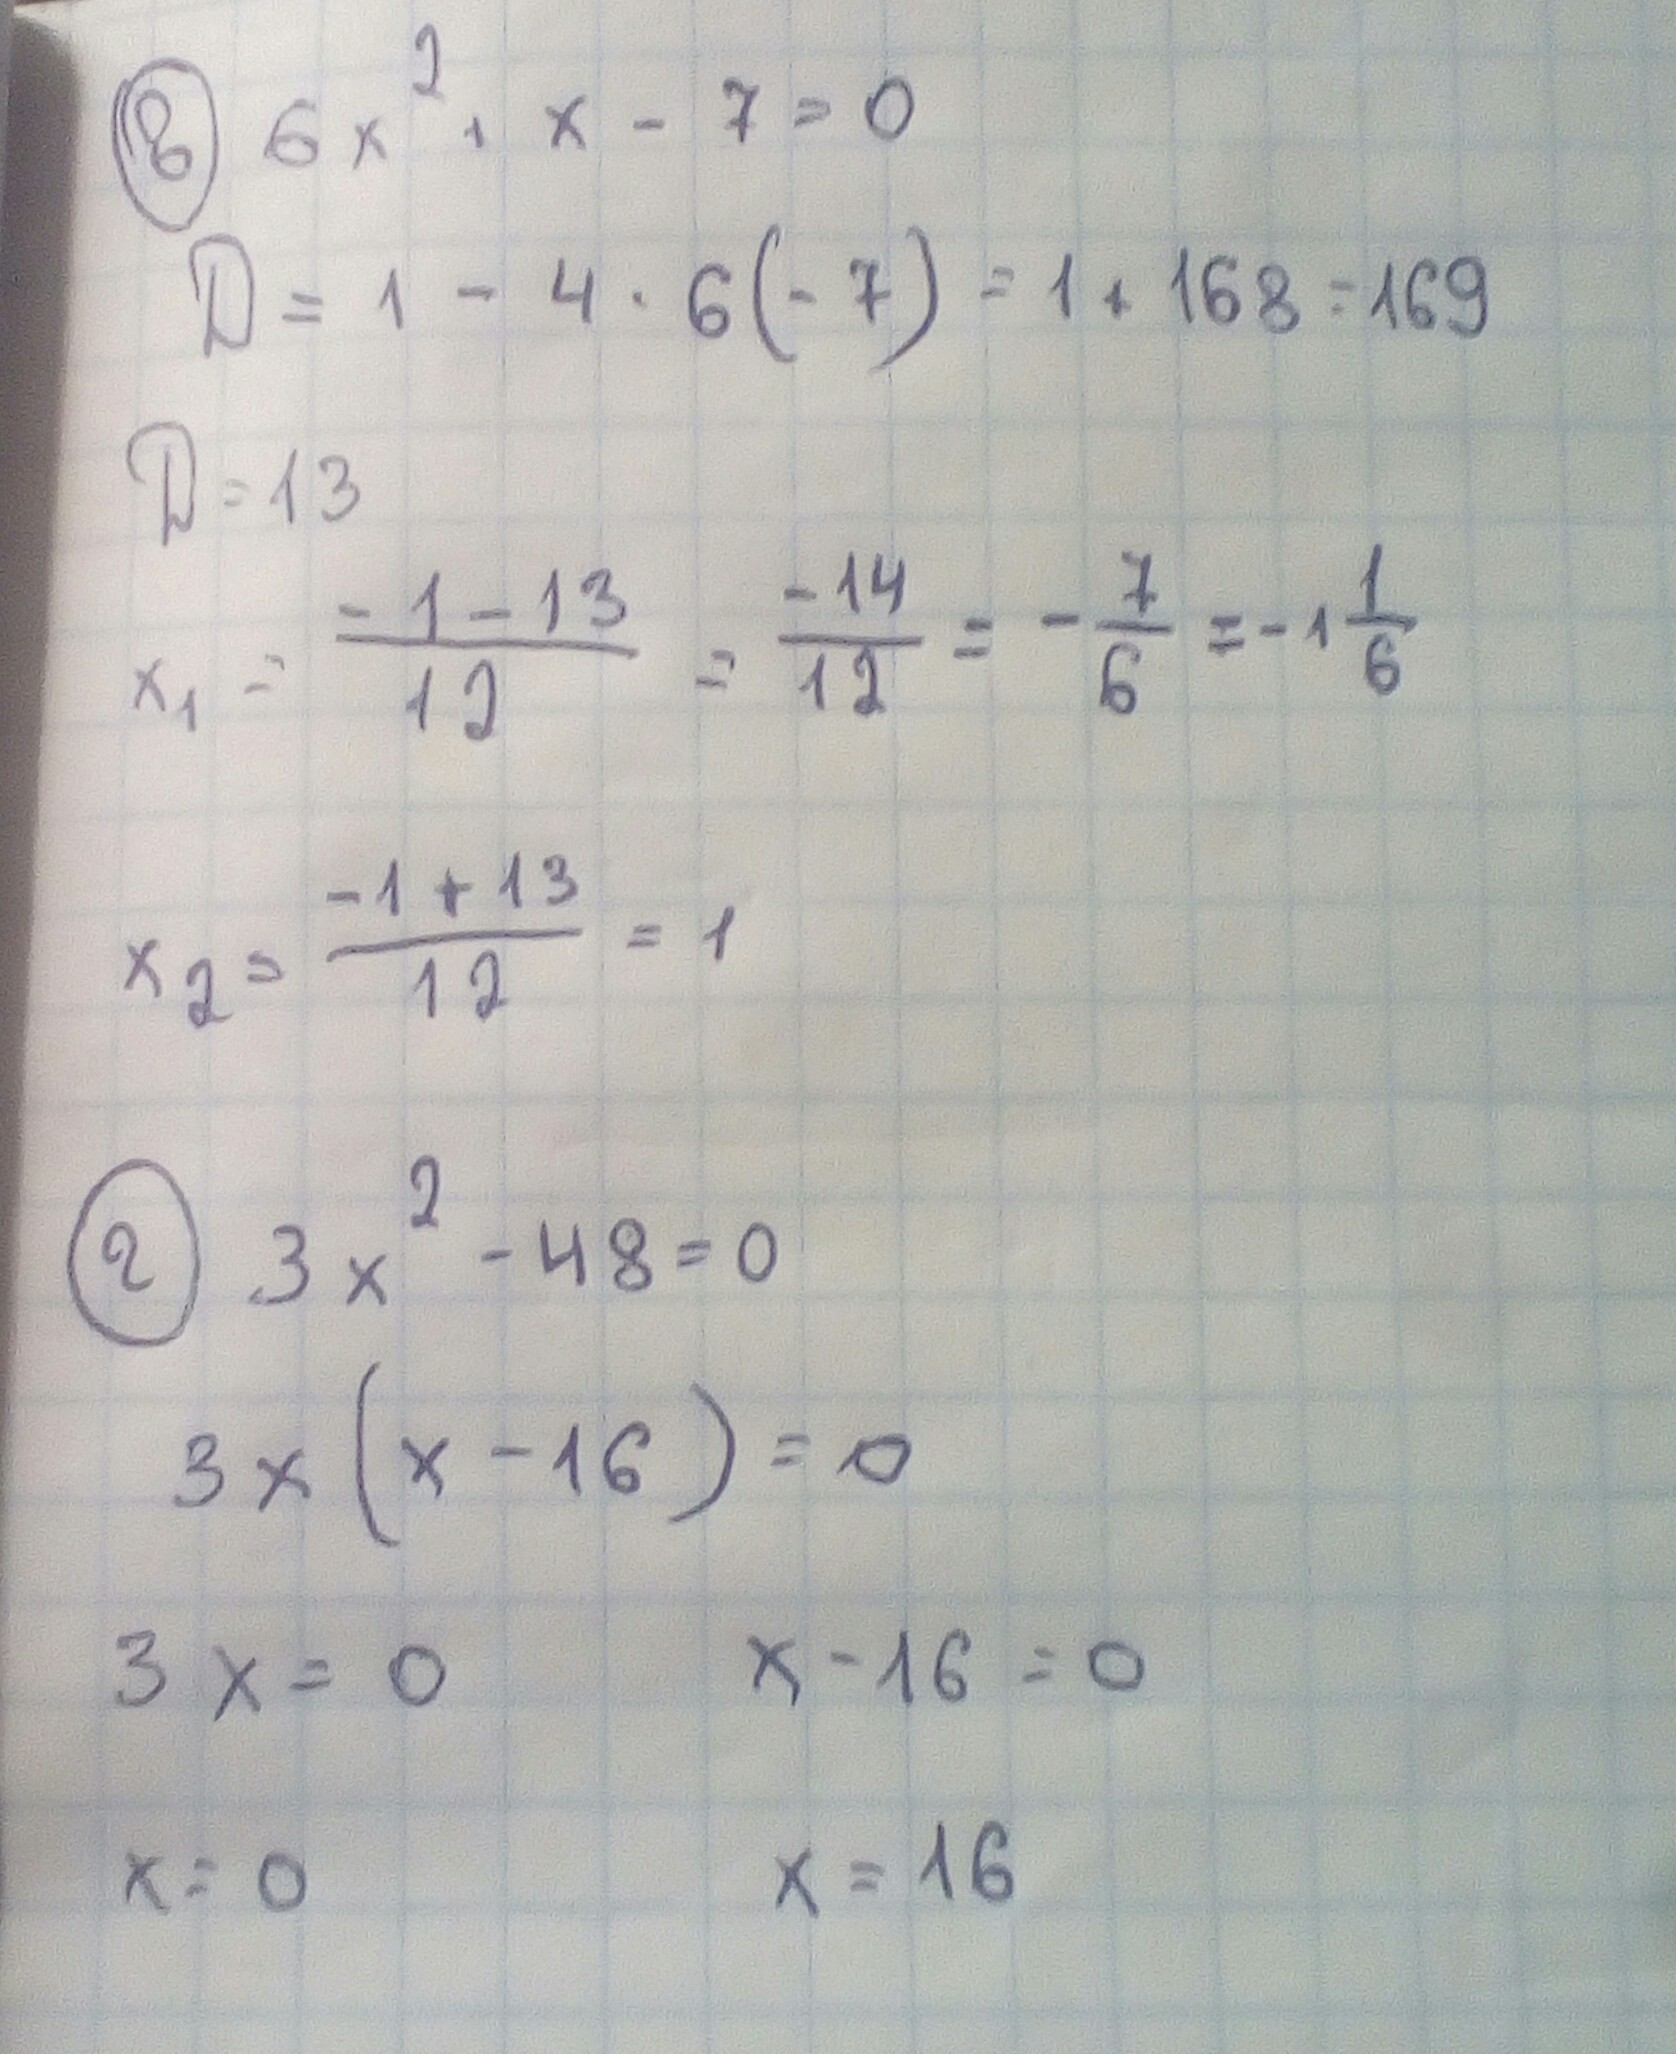 в 6x² + x - 7 = 0
D = 1 - 4 · 6(-7) = 1 + 168 = 169
D = 13
x₁ = (-1-13)/12 = -14/12 = -7/6 = -1 1/6
x₂ = (-1+13)/12 = 1
г 3x² - 48 = 0
3x(x - 16) = 0
3x = 0 x - 16 = 0
x = 0 x = 16